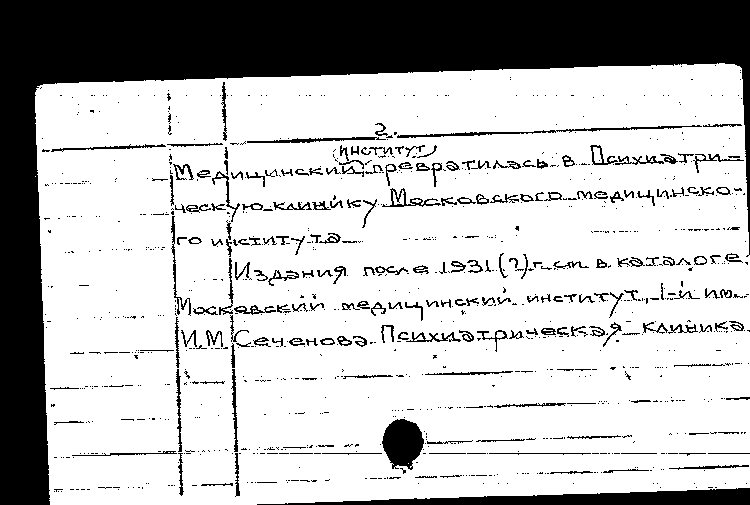 2.
институт
Медицинский превратилась в Психиатри-
ческую клинику Московского медицинско-
го института
Издания после 1931(?) г. см. в каталоге:
Московский медицинский институт, 1-й им.
И.М. Сеченова. Психиатрическая клиника